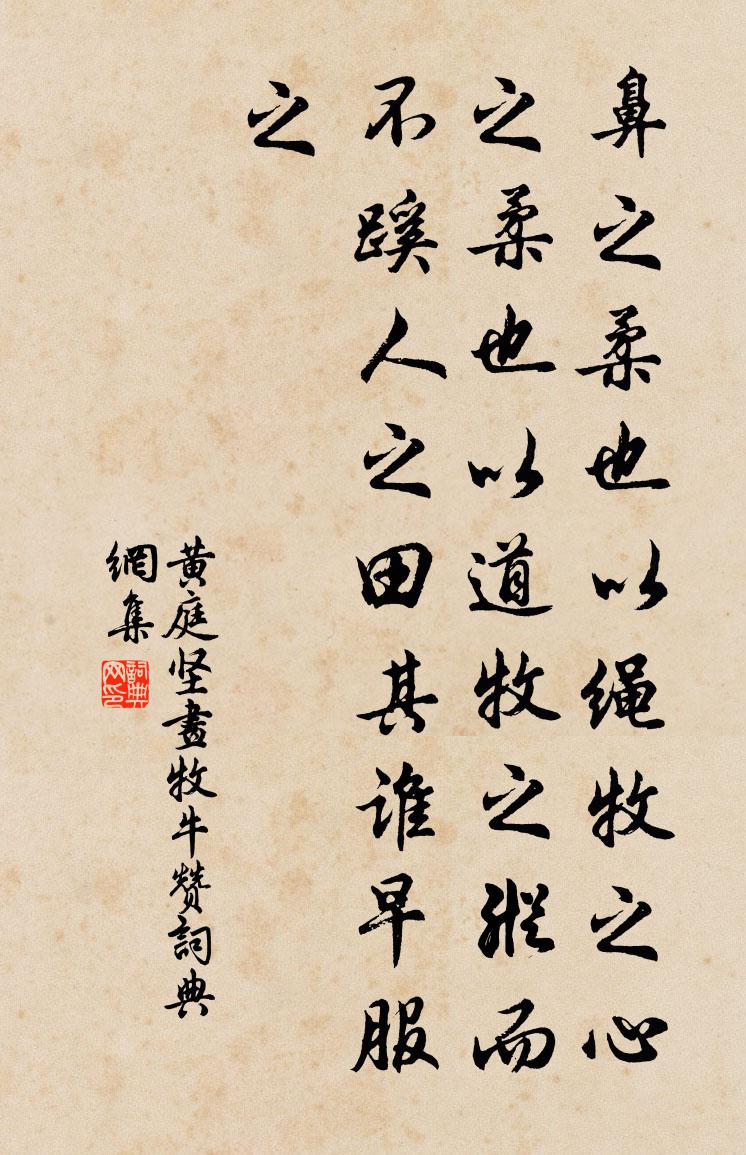 鼻之柔也以绳牧之心
之柔也以道牧之縱而
不蹊人之田其誰早服
之
黄庭坚畫牧牛赞詞典
網集
詞典
网印